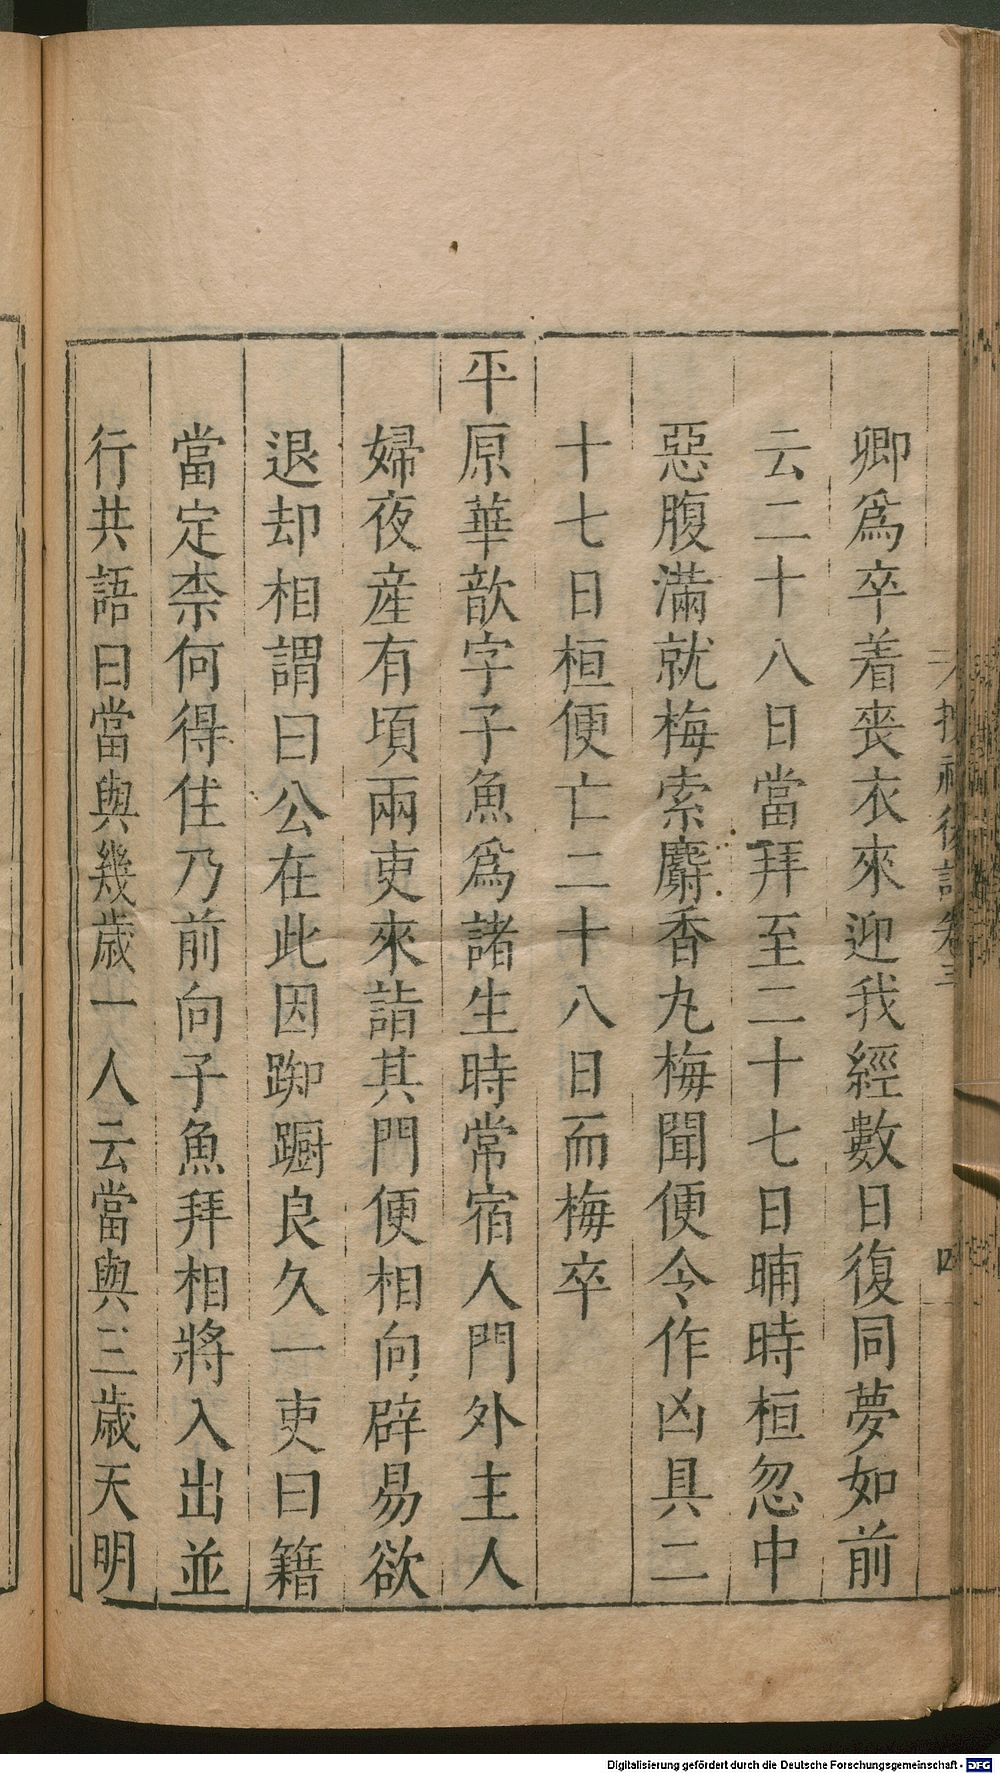 卿爲卒着喪衣來迎我經數日復同夢如前
云二十八日當拜至二十七日晡時桓忽中
惡腹滿就梅索麝香丸梅聞便令作凶具二
十七日桓便亡二十八日而梅卒
平原華歆字子魚爲諸生時常宿人門外主人
婦夜産有頃兩吏來詣其門便相向辟易欲
退却相謂曰公在此因踟蹰良久一吏曰籍
當定柰何得住乃前向子魚拜相將入出並
行共語曰當與幾歲一人云當與三歲天明
Digitalisierung gefördert durch die Deutsche Forschungsgemeinschaft - DFG